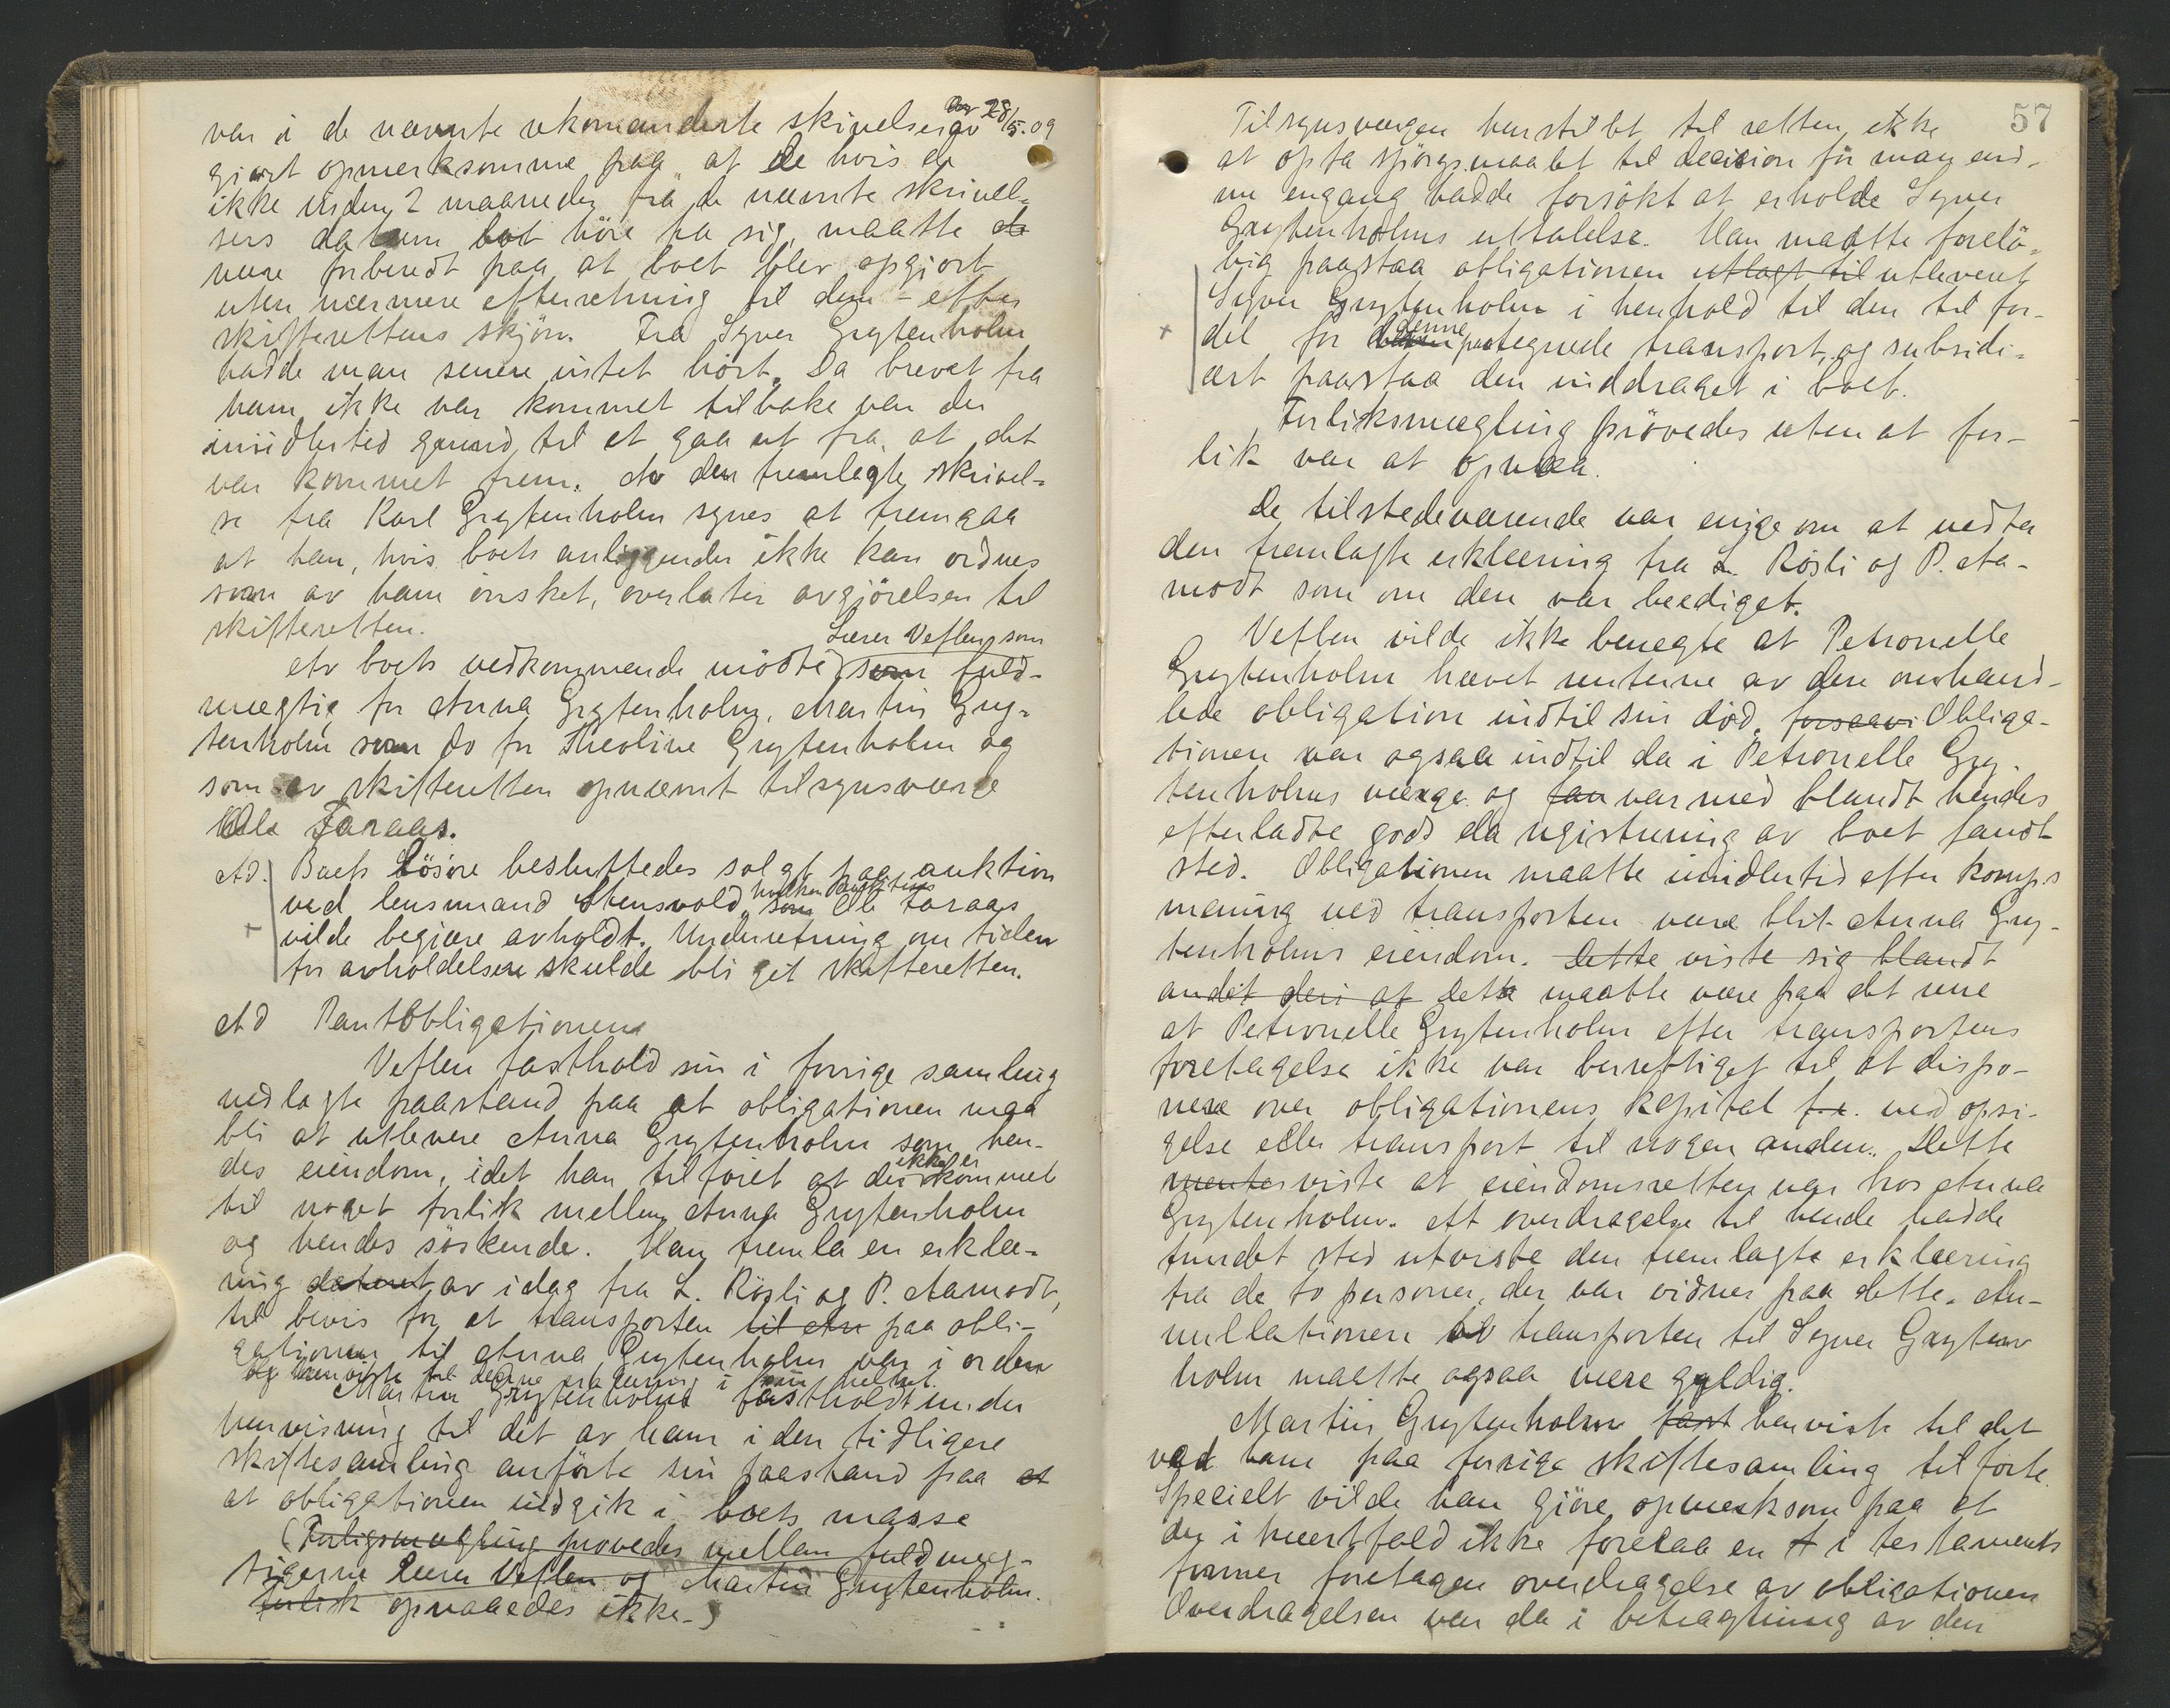 var i de nævnte rekomanderte skrivelser av 28/5.09
gjort opmerksomme paa at de hvis de
ikke inden 2 maaneder fra de nævnte skrivel-
sers datum lot höre fra sig, maatte de
være forberedt paa at boet blev opgjort
uten nærmere efterretning til dem - efter
skifterettens skjön. Fra Syver Grytenholm
hadde man senere intet hört. Da brevet fra
ham ikke var kommet tilbake var der
imidlertid grund til at gaa ut fra at det
var kommet frem. Av den fremlagte skrivel-
se fra Karl Grytenholm synes at fremgaa
at han, hvis boets anliggender ikke kan ordnes
som av ham önsket, overlater avgjörelsen til
skifteretten.
Av boets vedkommende mödte Lærer Veflen som som fuld-
mægtig for Anna Grytenholm, Martin Gry-
tenholm som do for Theoline Grytenholm og
som av skifteretten opnævnt tilsynsværge
Ole Faraas.
Ad. Boets Lösöre besluttedes solgt paa auktion
ved lensmand Stensvold, hvilken auktion som Ole Faraas
vilde begjære avholdt. Underretning om tiden
for avholdelsen skulde bli git skifteretten.
Ad Pantobligationen
Veflen fastholdt sin i forrige samling
nedlagte paastand paa at obligationen maa
bli at utlevere Anna Grytenholm som hen-
des eiendom, idet han tilföiet at der ikke er kommet
til noget forlik mellem Anna Grytenholm
og hendes söskende. Han fremla en erklæ-
ring dateret av idag fra L. Rösli og P. Aamodt,
til bevis for at transporten til An paa obli-
gationen til Anna Grytenholm var i orden
og henviste til denne erklæring i sin helhet.
Martin Grytenholm fastholdt under
henvisning til det av ham i den tidligere
skiftesamling anförte sin paastand paa at
at obligationen indgik i boets masse
(Forligsmægling prövedes mellem fuldmæg-
tigerne Lærer Veflen og Martin Grytenholm.
forlik opnaaedes ikke.)
57
Tilsynsværgen henstillet til retten ikke
at opta spörgsmaalet til decision för man end-
nu engang hadde forsökt at erholde Syver
Grytenholms uttalelse. Han maatte forelö-
big paastaa obligationen utlagt til utleveret
Syver Grytenholm i henhold til den til for-
del for denne paategnede transport, og subsidi-
ært paastaa den inddraget i boet.
Forliksmægling prövedes uten at for-
lik var at opnaa.
De tilstedeværende var enige om at vedta
den fremlagte erklæring fra L. Rösli og P. Aa-
modt som om den var beediget.
Veflen vilde ikke benegte at Petronelle
Grytenholm hævet renterne av den omhand-
lede obligation indtil sin död. forsaavi Obliga-
tionen var ogsaa indtil da i Petronelle Gry-
tenholms værge og fan var med blandt hendes
efterladte gods da registrering av boet fandt
sted. Obligationen maatte imidlertid efter komp.s
mening ved transporten være blit Anna Gry-
tenholms eiendom. Dette viste sig blandt
andet deri at Dette maatte være paa det rene
at Petronelle Grytenholm efter transportens
foretagelse ikke var berettiget til at dispo-
nere over obligationens kapital f.x. ved opsi-
gelse eller transport til nogen anden. Dette
mentes viste at eiendomsretten var hos Anna
Grytenholm. At overdragelse til hende hadde
fundet sted utviste den fremlagte erklæring
fra de to personer, der var vidner paa dette. An-
nullationen av transporten til Syver Gryten-
holm maatte ogsaa være gyldig.
Martin Grytenholm fast henviste til det
ved ham paa forrige skiftesamling tilförte.
Specielt vilde han gjöre opmerksom paa at
der i hvertfald ikke forelaa en t i testaments
former foretagen overdragelse av obligationen
Overdragelsen var da i betragtning av den